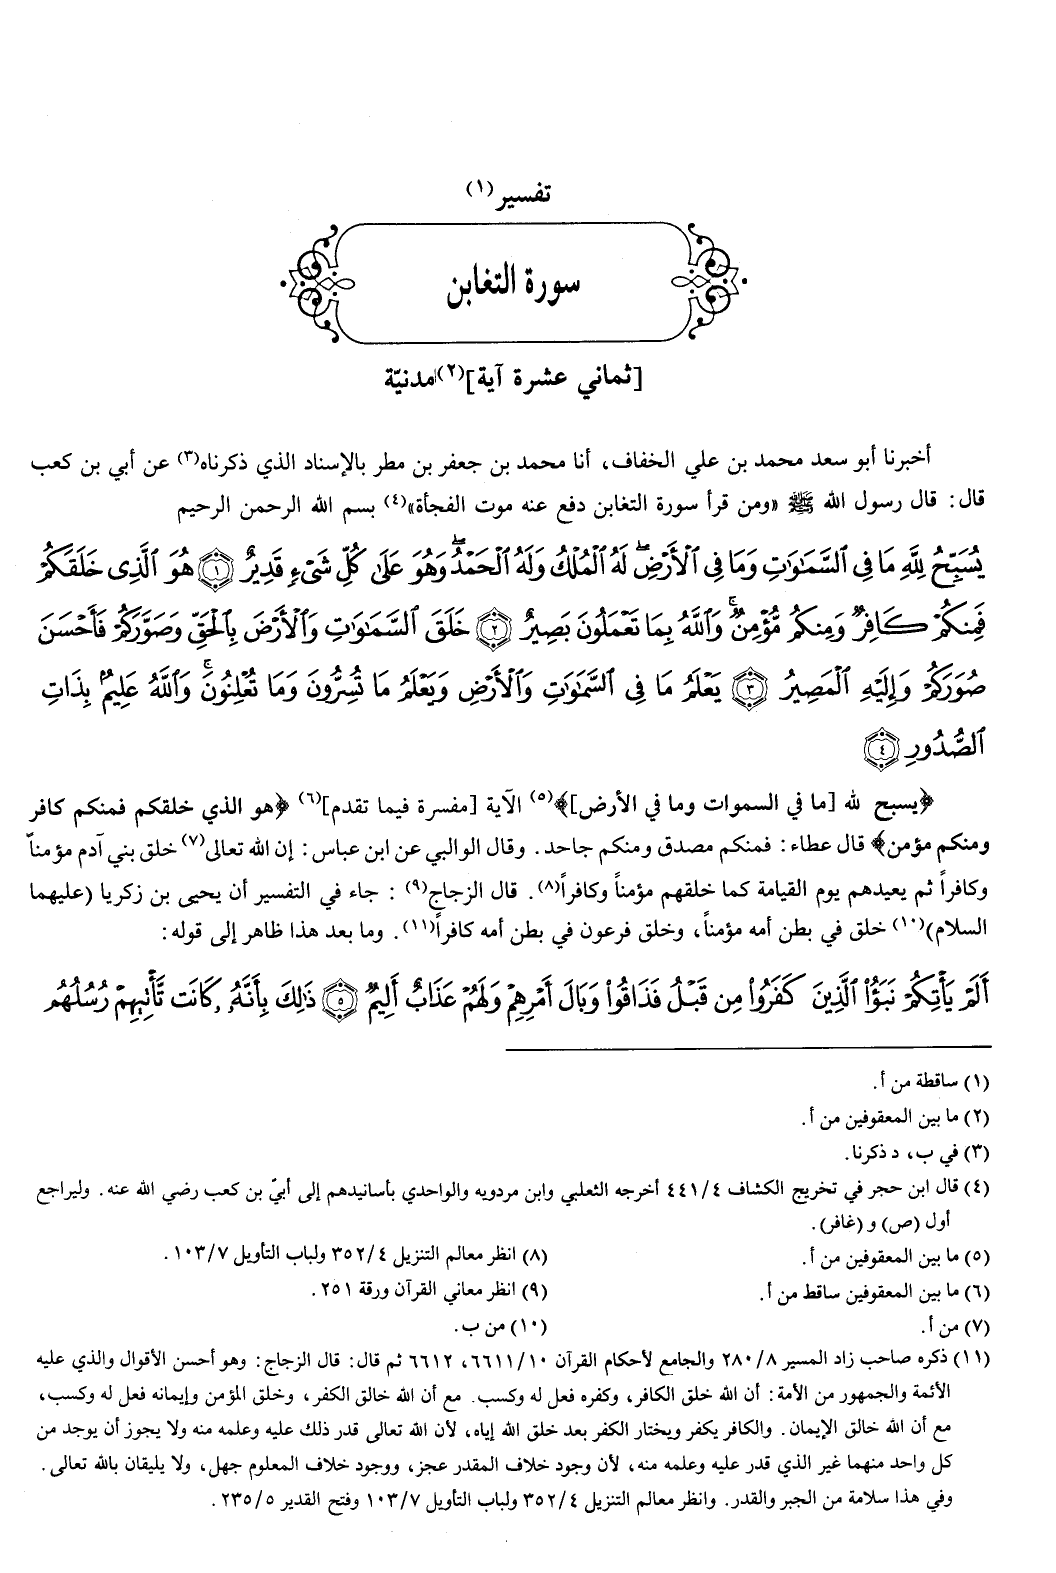 تفسير(١)
سورة التغابن
[ثماني عشرة آية](٢) مدنيّة
أخبرنا أبو سعد محمد بن علي الخفاف، أنا محمد بن جعفر بن مطر بالإسناد الذي ذكرناه(٣) عن أبي بن كعب
قال: قال رسول الله ﷺ «ومن قرأ سورة التغابن دفع عنه موت الفجأة»(٤) بسم الله الرحمن الرحيم
يُسَبِّحُ لِلَّهِ مَا فِي ٱلسَّمَٰوَٰتِ وَمَا فِي ٱلْأَرْضِۖ لَهُ ٱلْمُلْكُ وَلَهُ ٱلْحَمْدُۖ وَهُوَ عَلَىٰ كُلِّ شَيْءٍ قَدِيرٌ ﴿١﴾ هُوَ ٱلَّذِي خَلَقَكُمْ
فَمِنكُمْ كَافِرٌ وَمِنكُم مُّؤْمِنٌۚ وَٱللَّهُ بِمَا تَعْمَلُونَ بَصِيرٌ ﴿٢﴾ خَلَقَ ٱلسَّمَٰوَٰتِ وَٱلْأَرْضَ بِٱلْحَقِّ وَصَوَّرَكُمْ فَأَحْسَنَ
صُوَرَكُمْ وَإِلَيْهِ ٱلْمَصِيرُ ﴿٣﴾ يَعْلَمُ مَا فِي ٱلسَّمَٰوَٰتِ وَٱلْأَرْضِ وَيَعْلَمُ مَا تُسِرُّونَ وَمَا تُعْلِنُونَۚ وَٱللَّهُ عَلِيمٌۢ بِذَاتِ
ٱلصُّدُورِ ﴿٤﴾
﴿يسبح لله [ما في السموات وما في الأرض]﴾(٥) الآية [مفسرة فيما تقدم](٦) ﴿هو الذي خلقكم فمنكم كافر
ومنكم مؤمن﴾ قال عطاء: فمنكم مصدق ومنكم جاحد. وقال الوالبي عن ابن عباس: إن الله تعالى(٧) خلق بني آدم مؤمناً
وكافراً ثم يعيدهم يوم القيامة كما خلقهم مؤمناً وكافراً(٨). قال الزجاج(٩) : جاء في التفسير أن يحيى بن زكريا (عليهما
السلام)(١٠) خلق في بطن أمه مؤمناً، وخلق فرعون في بطن أمه كافراً(١١). وما بعد هذا ظاهر إلى قوله:
أَلَمْ يَأْتِكُمْ نَبَؤُا۟ ٱلَّذِينَ كَفَرُوا۟ مِن قَبْلُ فَذَاقُوا۟ وَبَالَ أَمْرِهِمْ وَلَهُمْ عَذَابٌ أَلِيمٌ ﴿٥﴾ ذَٰلِكَ بِأَنَّهُۥ كَانَت تَّأْتِيهِمْ رُسُلُهُم
(١) ساقطة من أ.
(٢) ما بين المعقوفين من أ.
(٣) في ب، د ذكرنا.
(٤) قال ابن حجر في تخريج الكشاف ٤٤١/٤ أخرجه الثعلبي وابن مردويه والواحدي بأسانيدهم إلى أبيّ بن كعب رضي الله عنه. وليراجع
أول (ص) و (غافر).
(٥) ما بين المعقوفين من أ.
(٦) ما بين المعقوفين ساقط من أ.
(٧) من أ.
(٨) انظر معالم التنزيل ٣٥٢/٤ ولباب التأويل ١٠٣/٧.
(٩) انظر معاني القرآن ورقة ٢٥١.
(١٠) من ب.
(١١) ذكره صاحب زاد المسير ٢٨٠/٨ والجامع لأحكام القرآن ٦٦١١/١٠، ٦٦١٢ ثم قال: قال الزجاج: وهو أحسن الأقوال والذي عليه
الأئمة والجمهور من الأمة: أن الله خلق الكافر، وكفره فعل له وكسب. مع أن الله خالق الكفر، وخلق المؤمن وإيمانه فعل له وكسب،
مع أن الله خالق الإيمان. والكافر يكفر ويختار الكفر بعد خلق الله إياه، لأن الله تعالى قدر ذلك عليه وعلمه منه ولا يجوز أن يوجد من
كل واحد منهما غير الذي قدر عليه وعلمه منه، لأن وجود خلاف المقدر عجز، ووجود خلاف المعلوم جهل، ولا يليقان بالله تعالى.
وفي هذا سلامة من الجبر والقدر. وانظر معالم التنزيل ٣٥٢/٤ ولباب التأويل ١٠٣/٧ وفتح القدير ٢٣٥/٥.